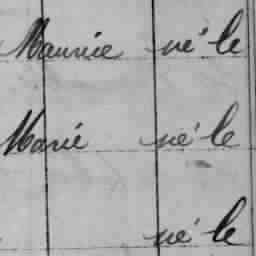 Maurice né le
Marie né le
né le